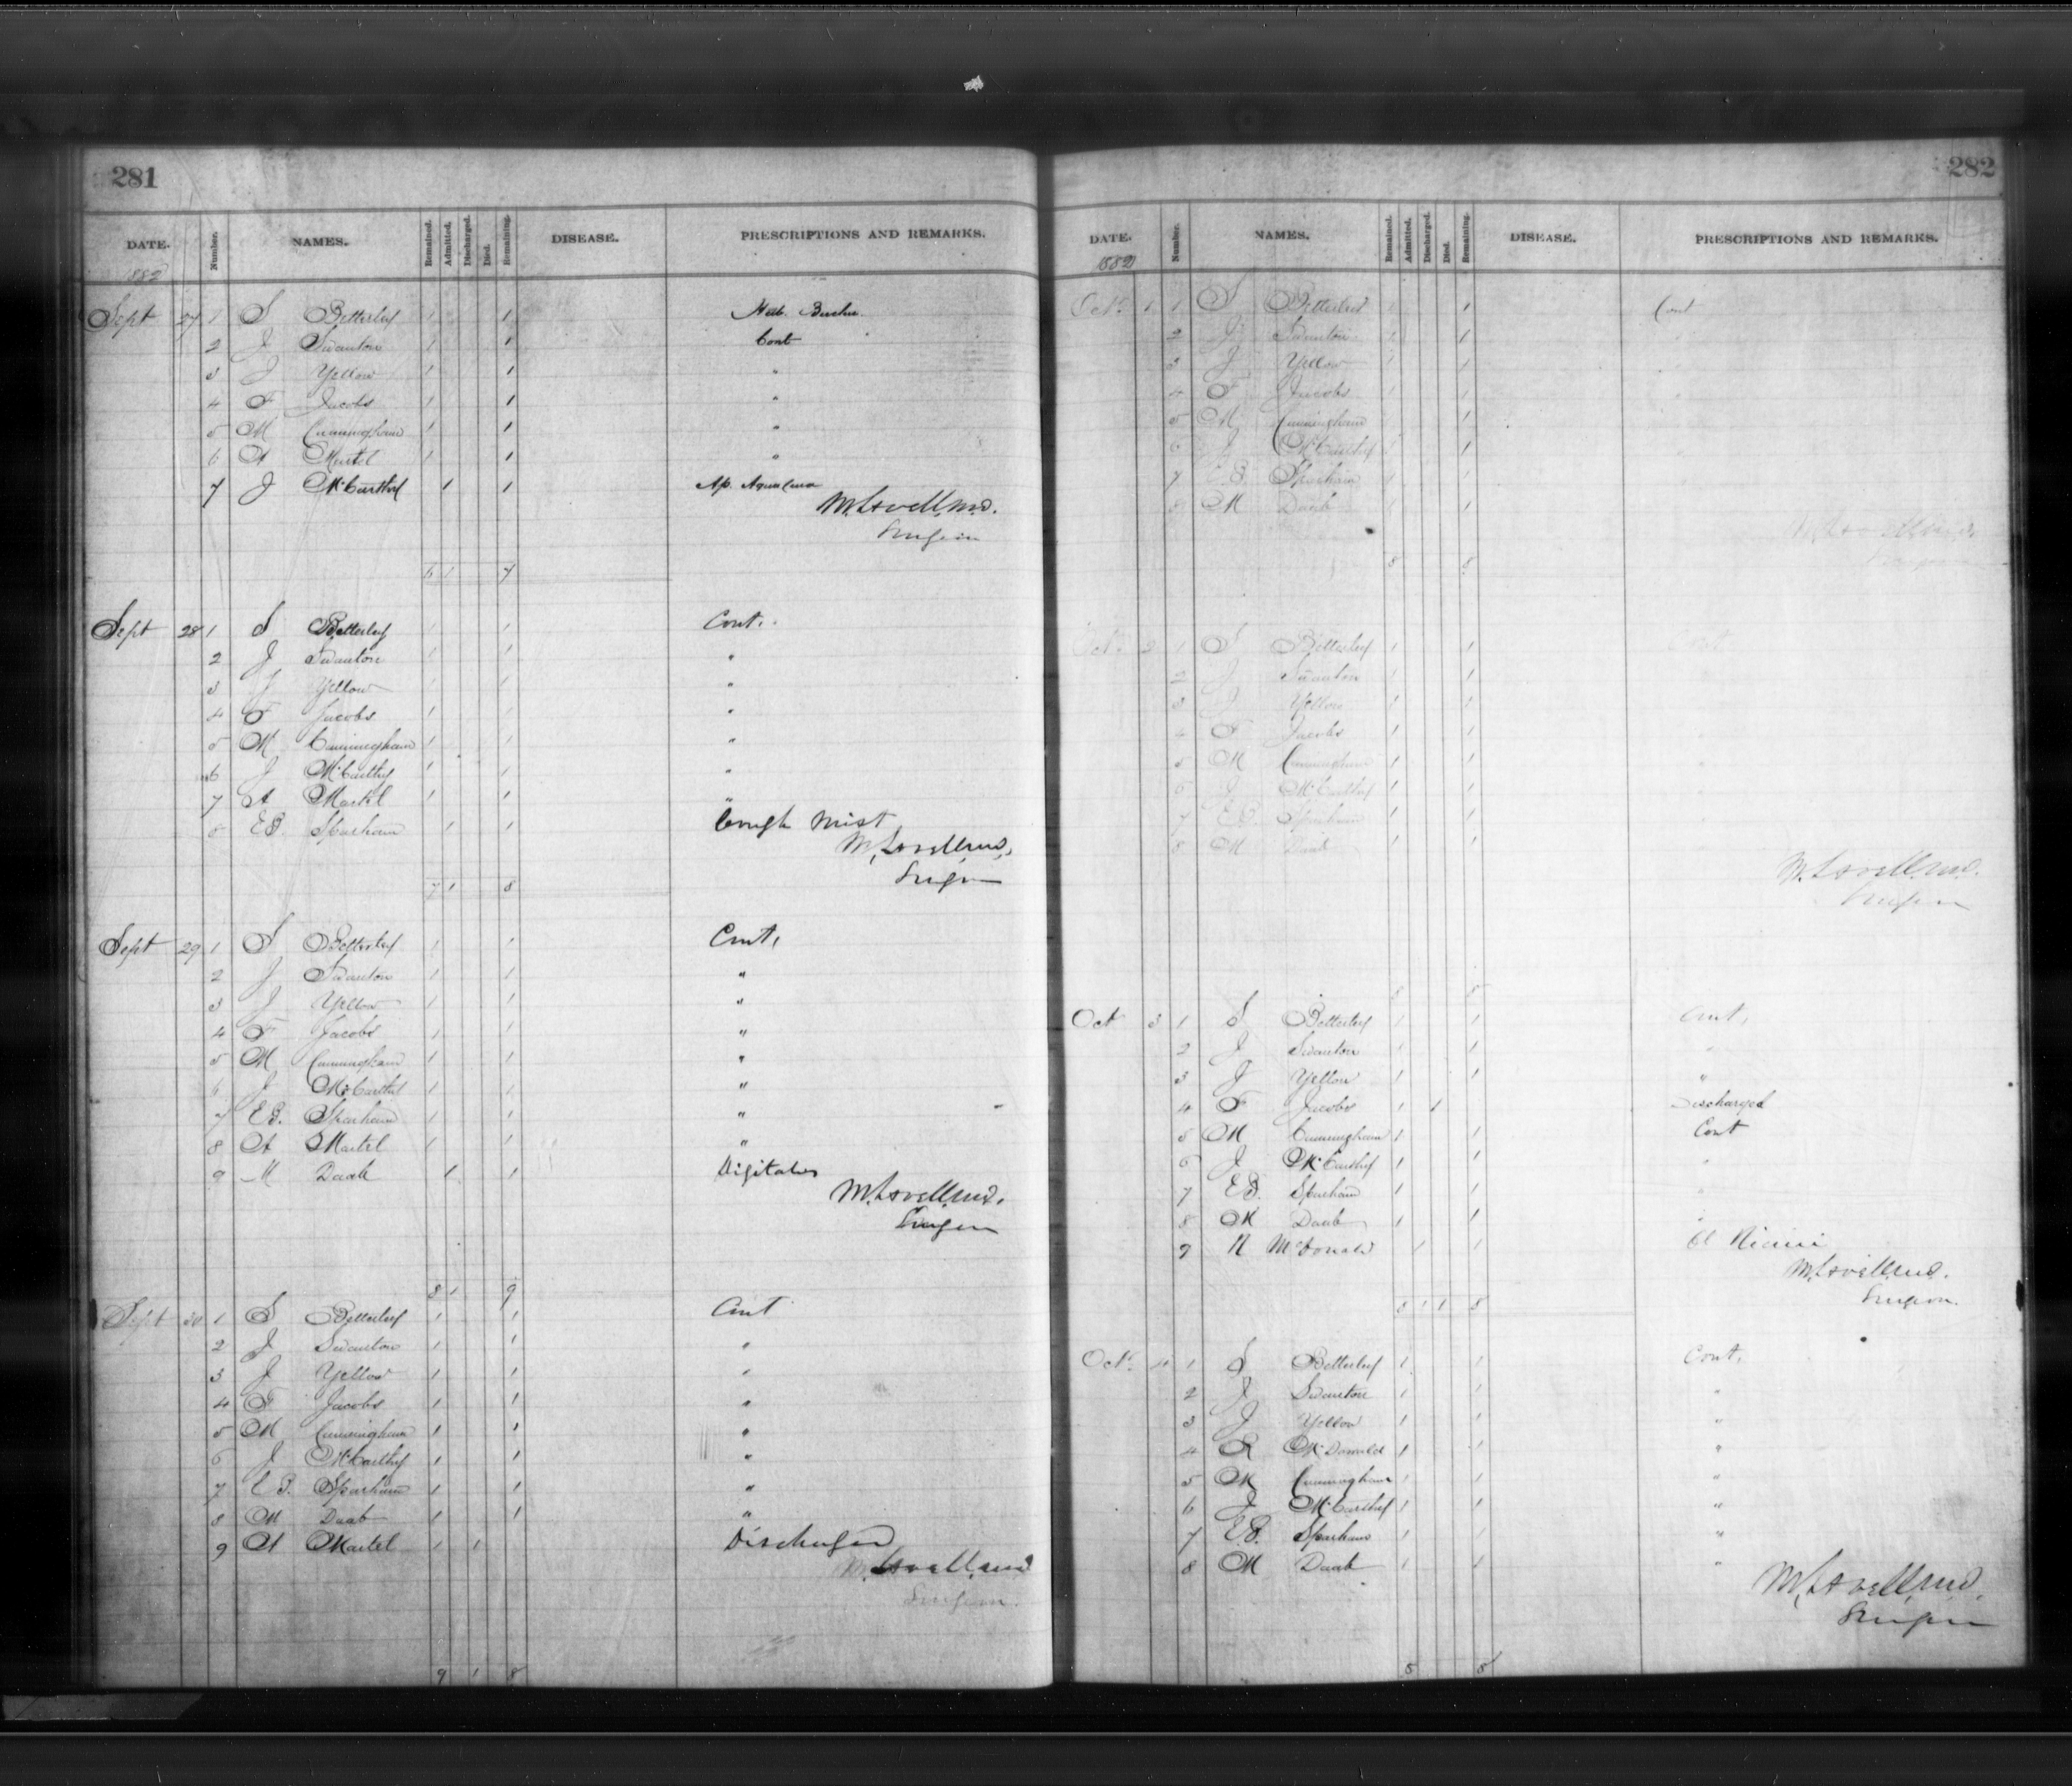 281
DATE. Number. NAMES. Remained. Admitted. Discharged. Died. Remaining. DISEASE. PRESCRIPTIONS AND REMARKS.
1882
Sept 27 1 S Betterley 1 1
2 J Swanton 1 1 Cont
3 J Yellow 1 1 "
4 F Jacobs 1 1 "
5 M Cunningham 1 1 "
6 A Martel 1 1 "
7 J McCarthy 1 1 Ap.
M. Lovell, M.D.
Surgeon
6 1 7
Sept 28 1 S Betterley 1 1 Cont.
2 J Swanton 1 1 "
3 J Yellow 1 1 "
4 F Jacobs 1 1 "
5 M Cunningham 1 1 "
6 J McCarthy 1 1 "
7 A Martel 1 1 "
8 E B. Sparham 1 1 Cough Mist
M. Lovell, M.D.
Surgeon
7 1 8
Sept 29 1 S Betterley 1 1 Cont.
2 J Swanton 1 1 "
3 J Yellow 1 1 "
4 F Jacobs 1 1 "
5 M Cunningham 1 1 "
6 J McCarthy 1 1 "
7 E B. Sparham 1 1 "
8 A Martel 1 1 "
9 M Daab 1 1 Digitalis
M. Lovell, M.D.
Surgeon
8 1 9
Sept 30 1 S Betterley 1 1 Cont
2 J Swanton 1 1 "
3 J Yellow 1 1 "
4 F Jacobs 1 1 "
5 M Cunningham 1 1 "
6 J McCarthy 1 1 "
7 E B. Sparham 1 1 "
8 M Daab 1 1 "
9 A Martel 1 1 Discharged
M. Lovell, M.D.
Surgeon
9 1 8
282
DATE. Number. NAMES. Remained. Admitted. Discharged. Died. Remaining. DISEASE. PRESCRIPTIONS AND REMARKS.
1882
Oct. 1 1 S Betterley 1 1 Cont
2 J Swanton 1 1
3 J Yellow 1 1
4 F Jacobs 1 1
5 M Cunningham 1 1
6 J McCarthy 1 1
7 E B Sparham 1 1
8 M Daab 1 1
M. Lovell, M.D.
Surgeon
8 8
Oct. 2 1 S Betterley 1 1 Cont
2 J Swanton 1 1
3 J Yellow 1 1
4 F Jacobs 1 1
5 M Cunningham 1 1
6 J McCarthy 1 1
7 E B Sparham 1 1
8 M Daab 1 1
M. Lovell, M.D.
Surgeon
8 8
Oct 3 1 S Betterley 1 1 Cont.
2 J Swanton 1 1 "
3 J Yellow 1 1 "
4 F Jacobs 1 1 Discharged
5 M Cunningham 1 1 Cont
6 J McCarthy 1 1 "
7 E B. Sparham 1 1 "
8 M Daab 1 1 "
9 R McDonald 1 1 Ol Ricini
M. Lovell, M.D.
Surgeon.
8 1 1 8
Oct. 4 1 S Betterley 1 1 Cont.
2 J Swanton 1 1 "
3 J Yellow 1 1 "
4 R McDonald 1 1 "
5 M Cunningham 1 1 "
6 J McCarthy 1 1 "
7 E B. Sparham 1 1 "
8 M Daab 1 1 "
M. Lovell, M.D.
Surgeon
8 8